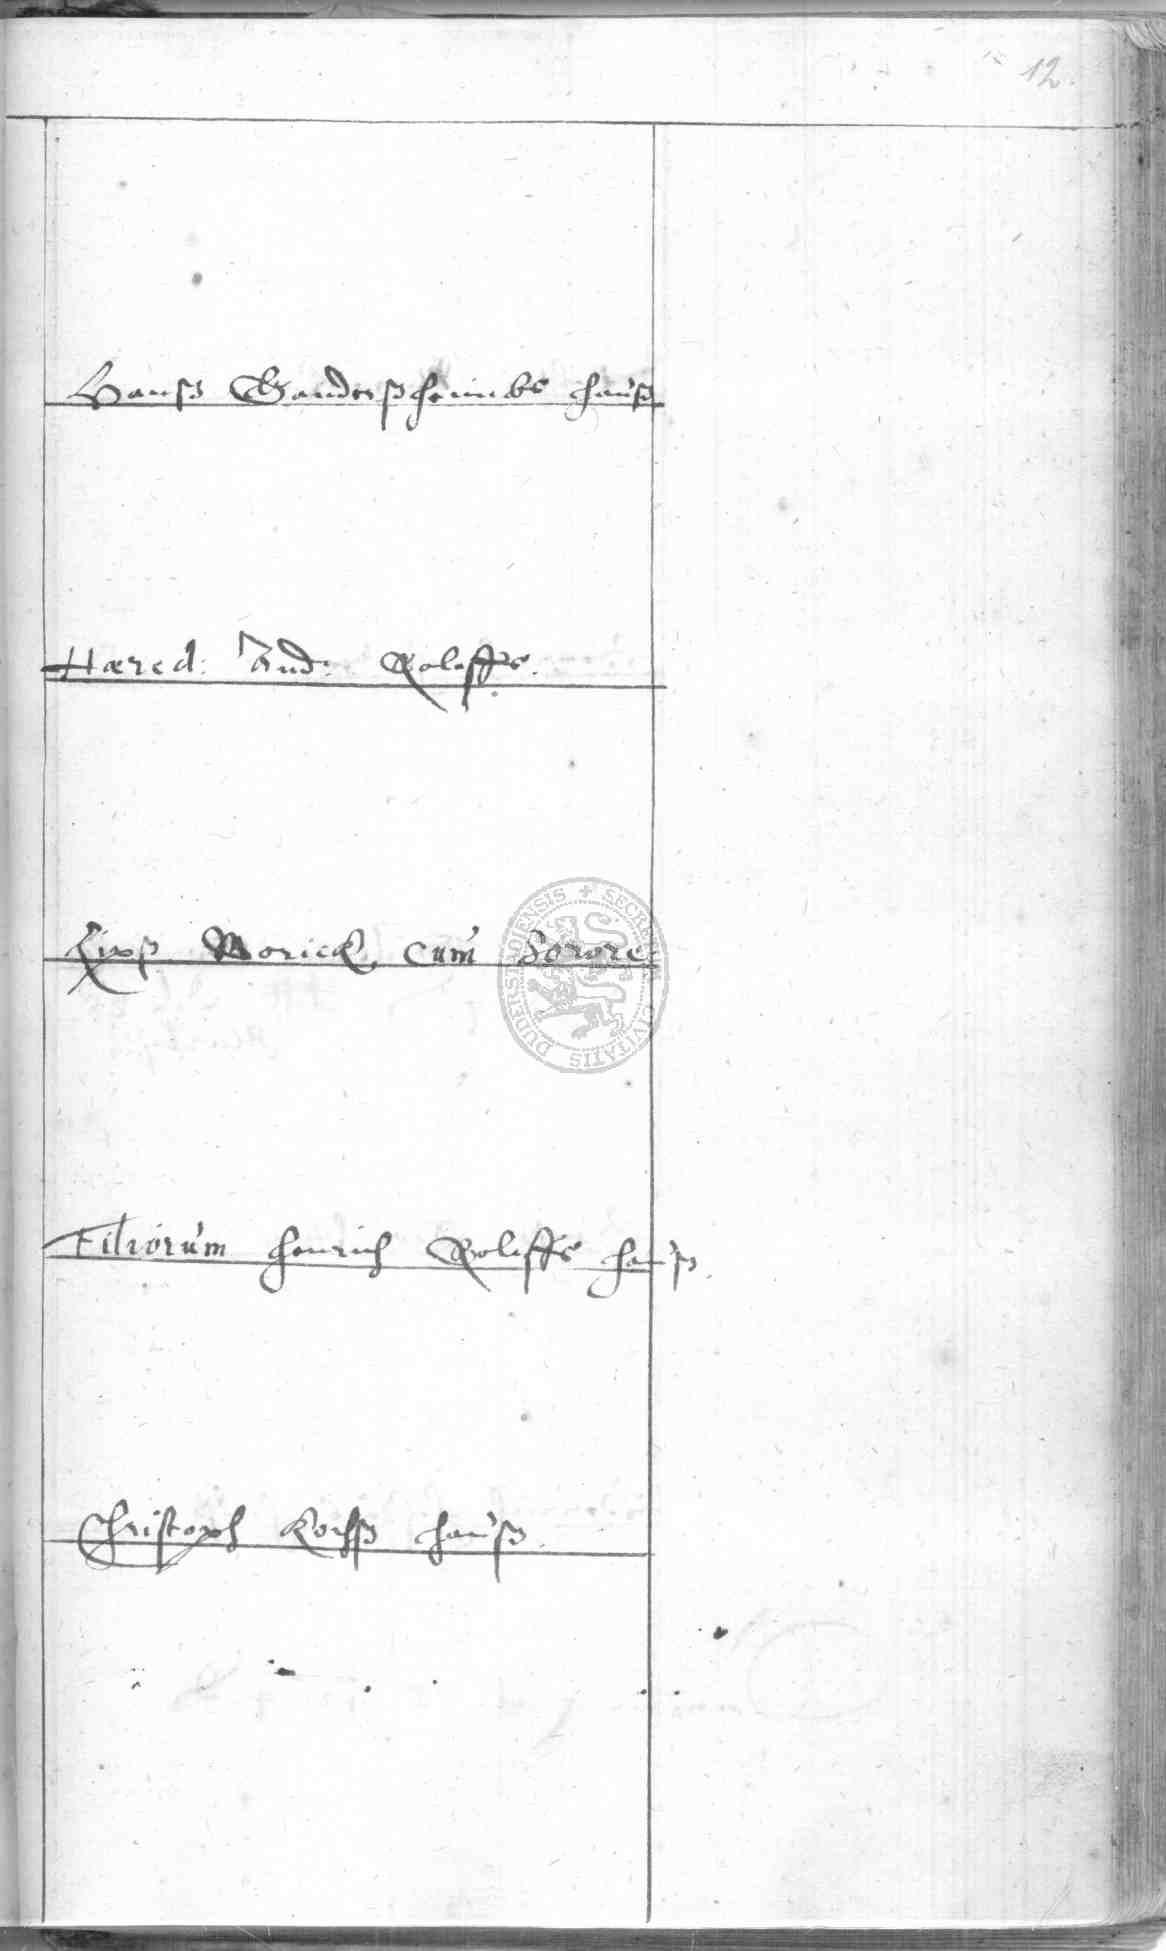 12.
Hanß Ganderßheimbs hauß
Hæred: And: Roleffs.
Worick, cum Sorore.
Filiorum Henrich Roleffs hauß.
Christoph Kochß hauß.
SECRETUM CIVITATIS DUDERSTADIENSIS